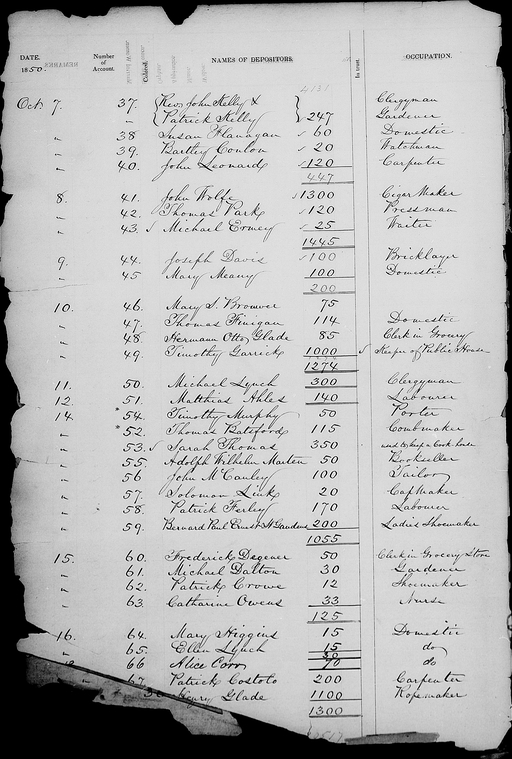 DATE. Number of Account. Colored. NAMES OF DEPOSITORS. In trust. OCCUPATION.
1850. REMARKS
Oct 7. 37. Rev. John Kelly & Clergyman
" " Patrick Kelly 247 Gardener
" 38 Susan Flanagan 60 Domestic
" 39. Bartley Conlon 20 Watchman
" 40. John Leonard 120 Carpenter
447
8. 41. John Wolfe 1300 Cigar Maker
" 42. Thomas Park 120 Pressman
" 43 Michael Ermey 25 Waiter
1445
9. 44. Joseph Davis 100 Bricklayer
" 45 Mary Meany 100 Domestic
200
10. 46. Mary S. Brouwer 75
" 47. Thomas Finigan 114 Domestic
" 48. Hermann Otto Glade 85 Clerk in Grocery
" 49. Timothy Garrick 1000 Keeper of Public House
1274
11. 50. Michael Lynch 300 Clergyman
12. 51. Matthias Ahles 140 Labourer
14 * 54. Timothy Murphy 50 Porter
" * 52. Thomas Batsford 115 Combmaker
" 53. Sarah Thomas 350 used to keep a Cook house
" 55. Adolph Wilhelm Marten 50 Bookseller
" 56 John McCauley 100 Tailor
" 57. Solomon Link 20 CapMaker
" 58. Patrick Ferley 170 Labourer
" 59. Bernard Paul Ernest St Gaudens 200 Ladies Shoemaker
1055
15. 60. Frederick Degener 50 Clerk in Grocery Store
" 61. Michael Dalton 30 Gardener
" 62. Patrick Crowe 12 Shoemaker
" 63. Catharine Owens 33 Nurse
125
16. 64. Mary Higgins 15 Domestic
" 65. Ellen Lynch 15 do
30
66 Alice Corr 70 do
" 67. Patrick Costolo 200 Carpenter
Henry Glade 1100 Ropemaker
1300